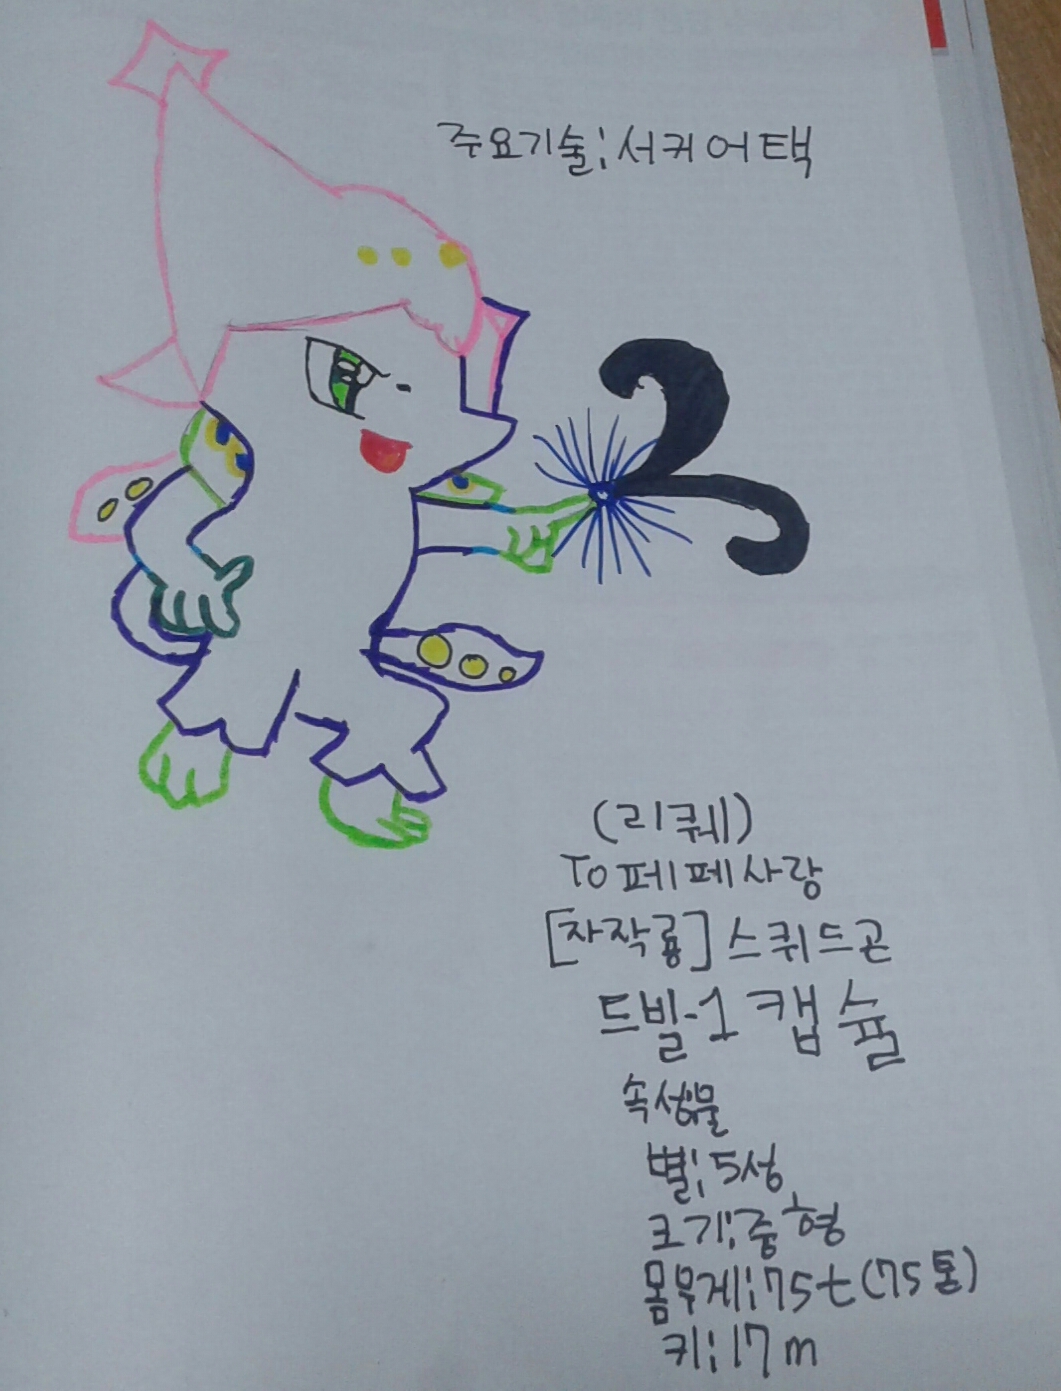 주요기술:서커어택
(리퀘)
To페페사랑
[자작룡]스퀴드곤
드빌-1 캡슐
속성:물
별:5성
크기:중형
몸무게:75t(75톤)
키:17m